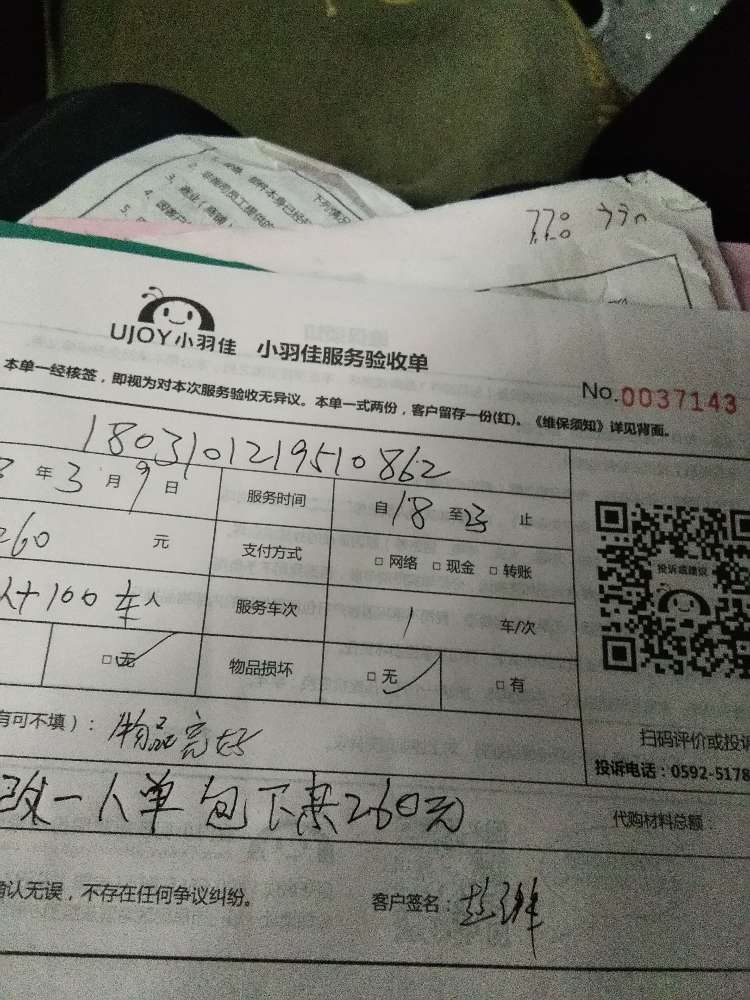 下列情况
3、商业（商铺）
UJOY小羽佳 小羽佳服务验收单
No.0037143
本单一经核签，即视为对本次服务验收无异议。本单一式两份，客户留存一份(红)。《维保须知》详见背面。
180310121951​0862
年3月9日 服务时间 自18至23止
260 元 支付方式 □网络 □现金 □转账
投诉或建议
+100车人 服务车次 1 车/次
□无 物品损坏 □无 □有
有可不填）： 物品完好
扫码评价或投诉
投诉电话：0592-5178
改一人单包下来260元
代购材料总额：
确认无误，不存在任何争议纠纷。 客户签名：